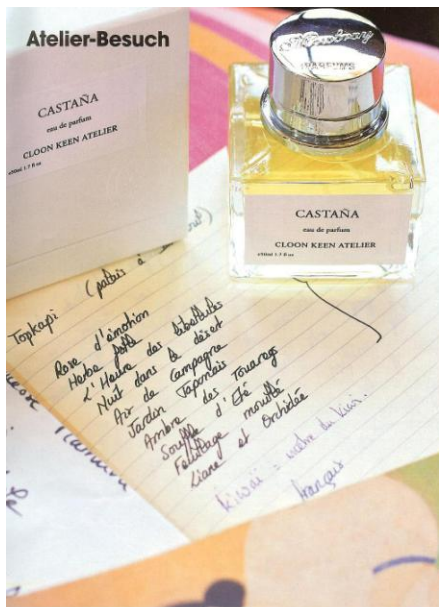 Atelier-Besuch
CASTAÑA
eau de parfum
CLOON KEEN ATELIER
e50ml 1.7 fl oz
CASTAÑA
eau de parfum
CLOON KEEN ATELIER
e50ml 1.7 fl oz
Topkapi (palais à
Rose d'émotion
Herbe folle
L'Heure des libellules
Nuit dans le désert
Air de Campagne
Jardin Japonais
Ambre des Touaregs
Souffle d'Eté
Feuillage mouillé
Liane et Orchidée
français